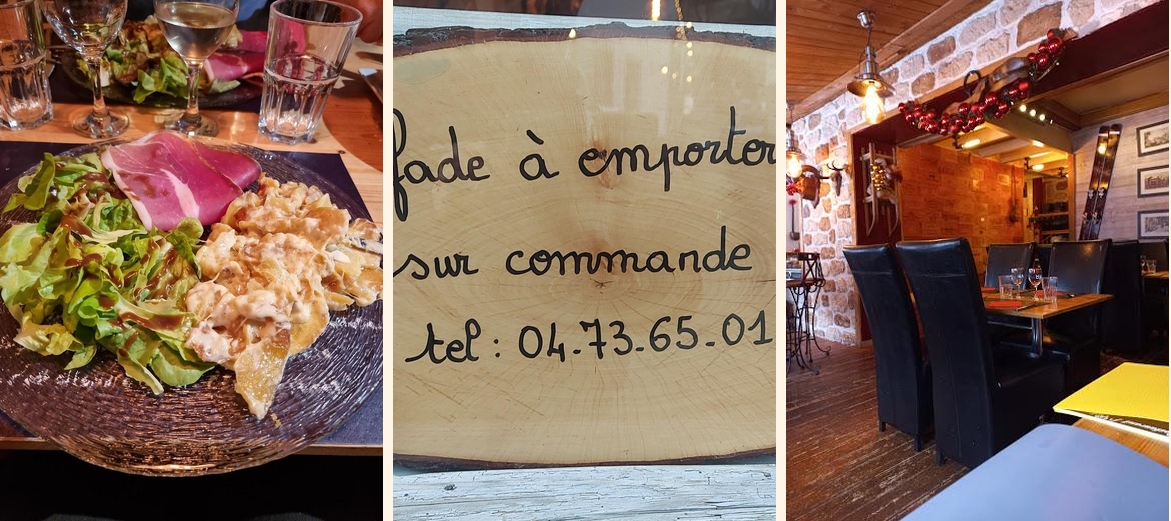 fade à emporter
sur commande
tel : 04.73.65.01